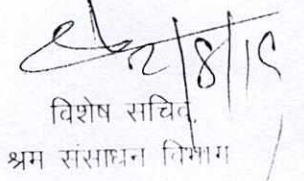 2/8/19
विशेष सचिव,
श्रम संसाधन विभाग